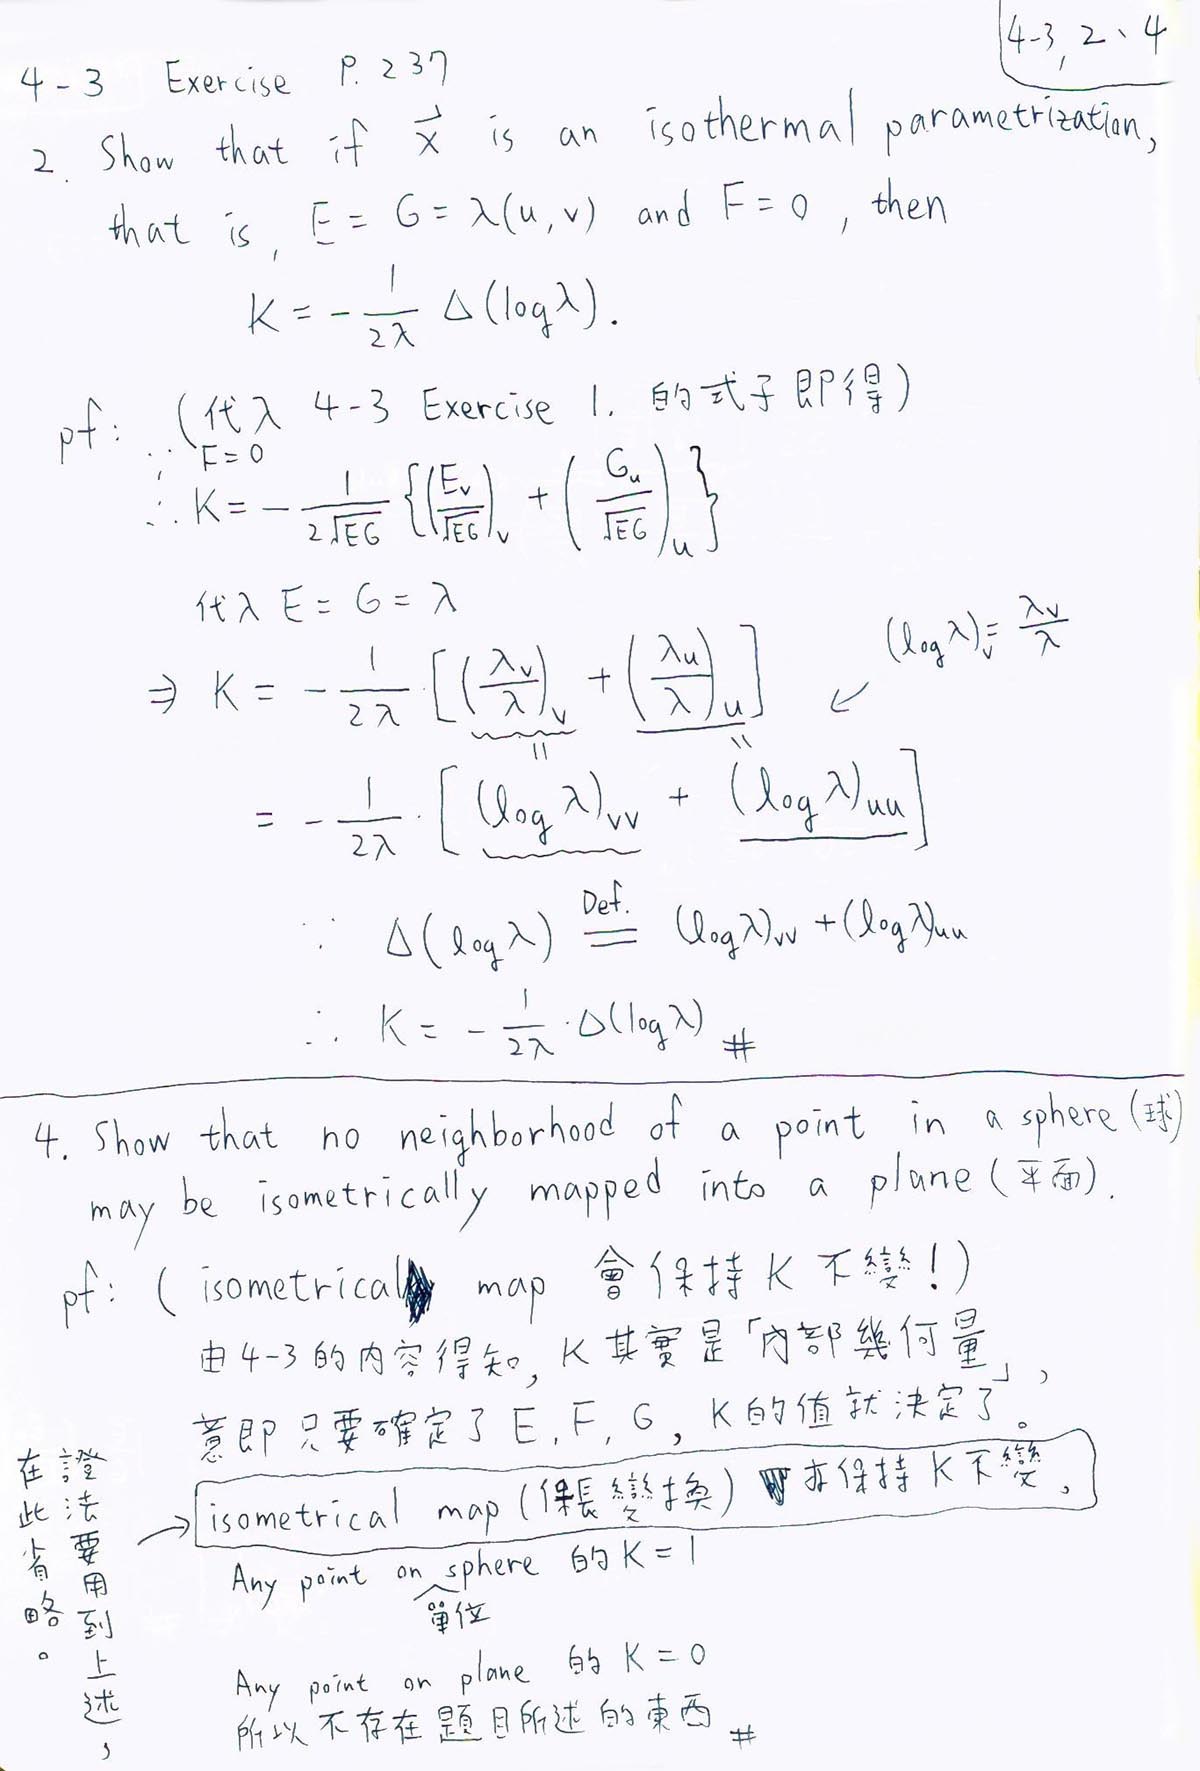 4-3, 2、4
4-3 Exercise P.237
2. Show that if \vec{x} is an isothermal parametrization,
that is, E = G = λ(u, v) and F = 0, then
K = -\frac{1}{2λ} Δ(log λ).
pf: (代入 4-3 Exercise 1. 的式子即得)
∵ F = 0
∴ K = -\frac{1}{2\sqrt{EG}} {(\frac{E_v}{\sqrt{EG}})_v + (\frac{G_u}{\sqrt{EG}})_u}
代入 E = G = λ
(log λ)_v = \frac{λ_v}{λ}
⇒ K = -\frac{1}{2λ} · [(\frac{λ_v}{λ})_v + (\frac{λ_u}{λ})_u]
= -\frac{1}{2λ} · [(log λ)_{vv} + (log λ)_{uu}]
∵ Δ(log λ) \overset{Def.}{=} (log λ)_{vv} + (log λ)_{uu}
∴ K = -\frac{1}{2λ} · Δ(log λ) #
4. Show that no neighborhood of a point in a sphere (球)
may be isometrically mapped into a plane (平面).
pf: (isometrical map 會保持 K 不變!)
由 4-3 的內容得知, K 其實是「內部幾何量」,
意即只要確定了 E, F, G, K 的值就決定了。
isometrical map (保長變換) 亦保持 K 不變,
Any point on 單位 sphere 的 K = 1
Any point on plane 的 K = 0
所以不存在題目所述的東西 #
證法要用到上述,
在此省略。